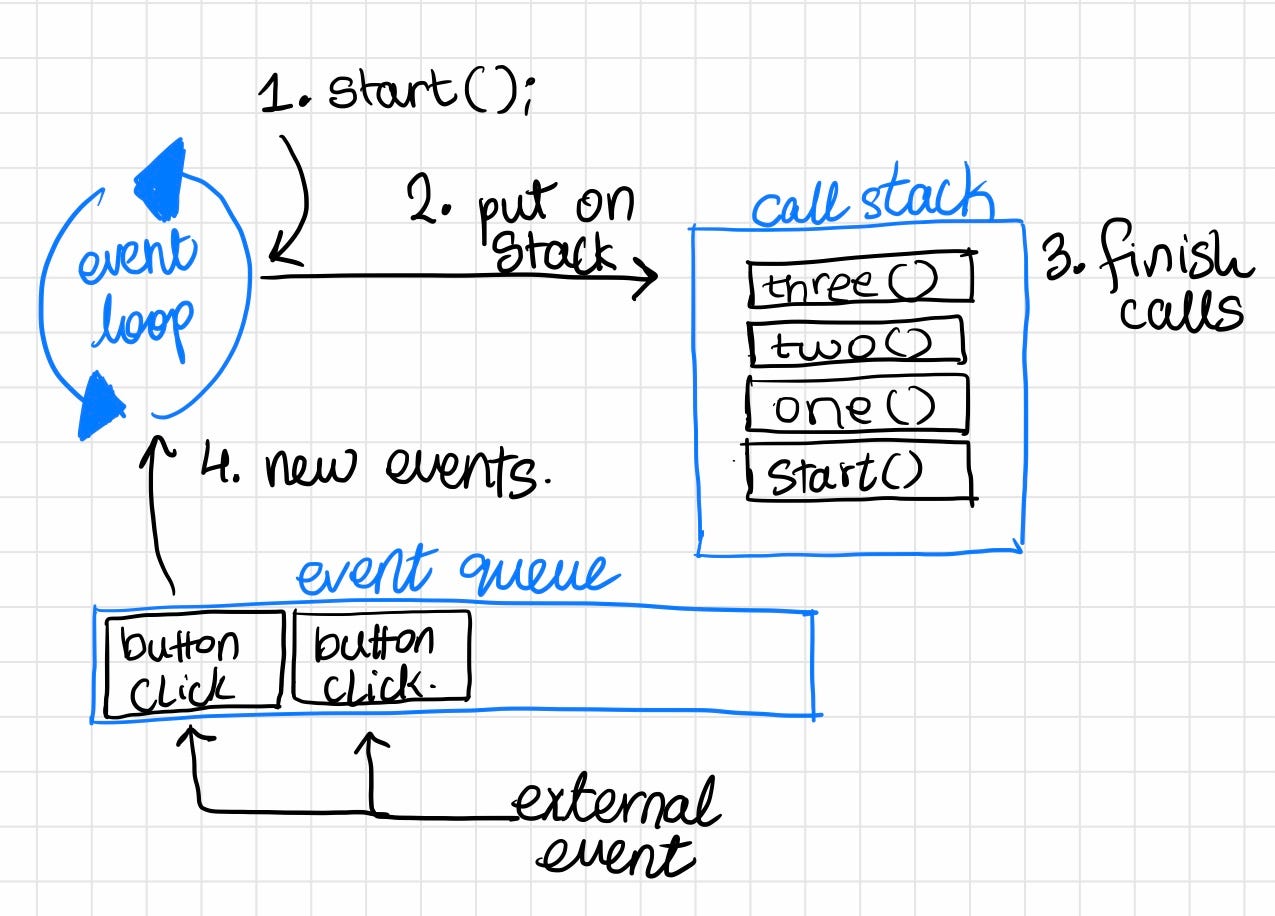 1. start();
2. put on
stack
call stack
three()
two()
one()
start()
3. finish
calls
event
loop
4. new events.
event queue
button
click
button
click.
external
event